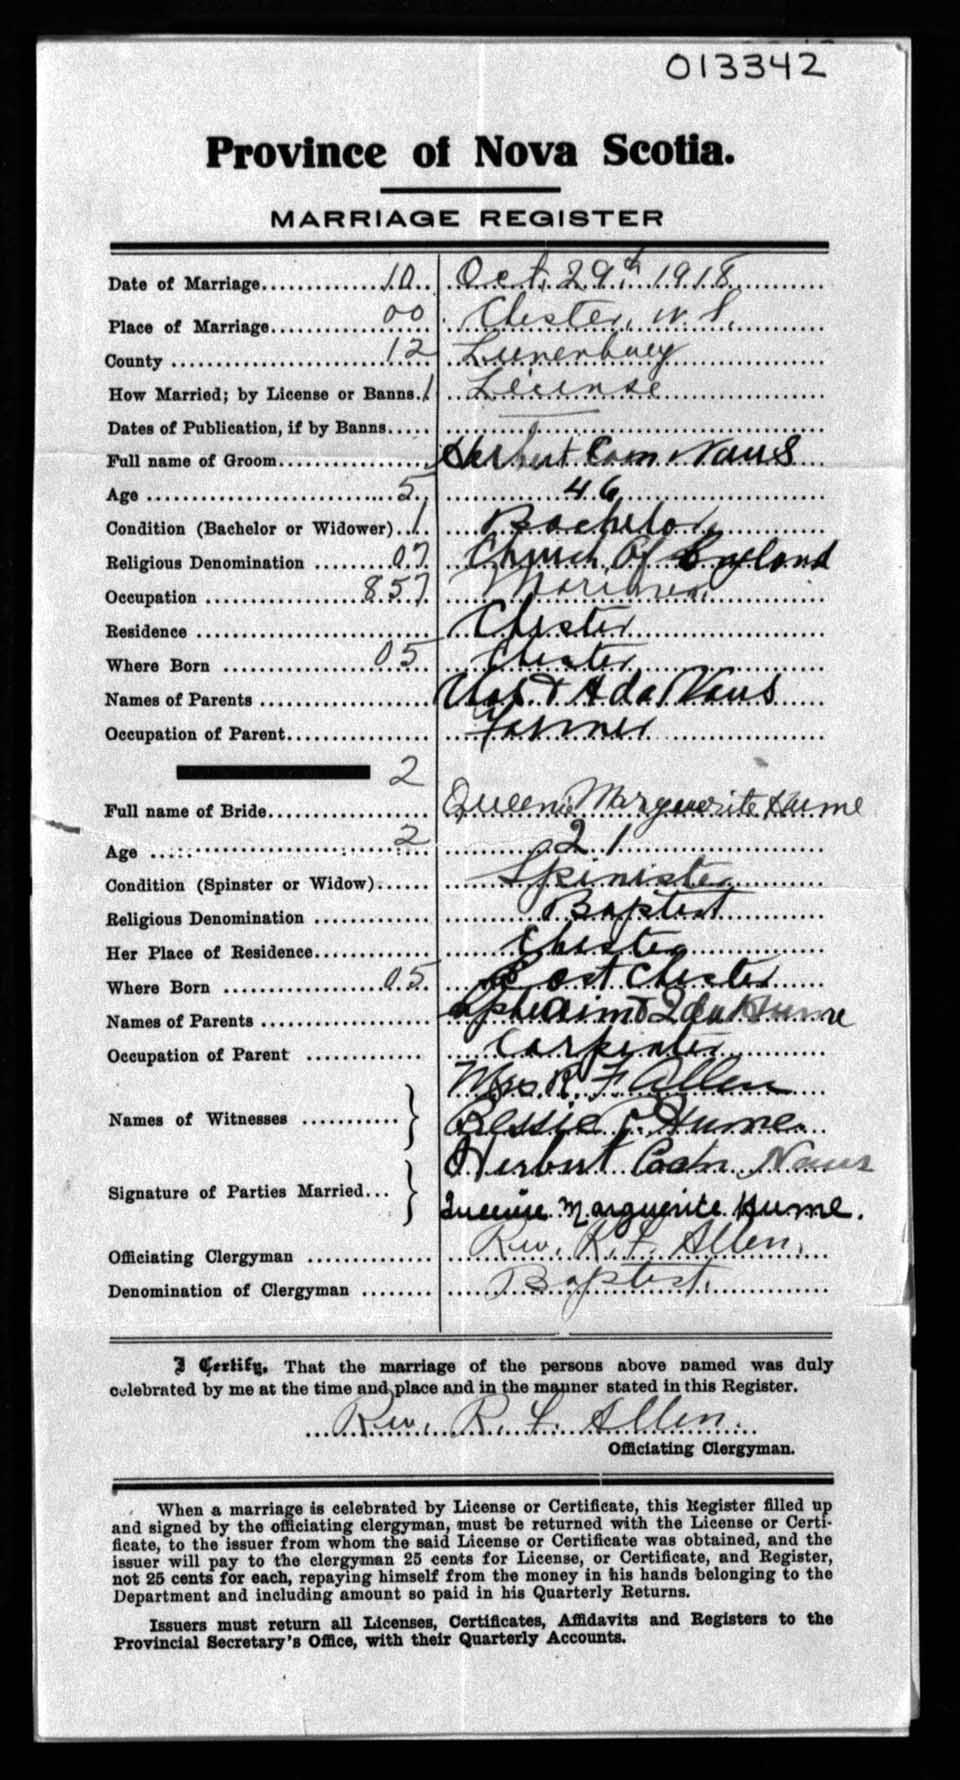 013342
Province of Nova Scotia.
MARRIAGE REGISTER
Date of Marriage 10 Oct. 29th 1918
Place of Marriage 00 Chester, N. S.
County 12 Lunenburg
How Married; by License or Banns 1 License
Dates of Publication, if by Banns
Full name of Groom Herbert Naus
Age 5 46
Condition (Bachelor or Widower) 1 Bachelor
Religious Denomination 07 Church Of England
Occupation 857 Mariner
Residence Chester
Where Born 05 Chester
Names of Parents & Ada Naus
Occupation of Parent Farmer
2
Full name of Bride Queenie Marguerite Hume
Age 2 21
Condition (Spinster or Widow) Spinister
Religious Denomination Baptist
Her Place of Residence Chester
Where Born 05 East Chester
Names of Parents Ephraim & Ida Hume
Occupation of Parent Carpenter
Mrs. R. F. Allen
Names of Witnesses Bessie Hume.
Herbert Naus
Signature of Parties Married Queenie Marguerite Hume.
Officiating Clergyman Rev. R. F. Allen.
Denomination of Clergyman Baptist.
I Certify, That the marriage of the persons above named was duly
celebrated by me at the time and place and in the manner stated in this Register.
Rev. R. F. Allen.
Officiating Clergyman.
When a marriage is celebrated by License or Certificate, this Register filled up
and signed by the officiating clergyman, must be returned with the License or Certi-
ficate, to the issuer from whom the said License or Certificate was obtained, and the
issuer will pay to the clergyman 25 cents for License, or Certificate, and Register,
not 25 cents for each, repaying himself from the money in his hands belonging to the
Department and including amount so paid in his Quarterly Returns.
Issuers must return all Licenses, Certificates, Affidavits and Registers to the
Provincial Secretary's Office, with their Quarterly Accounts.